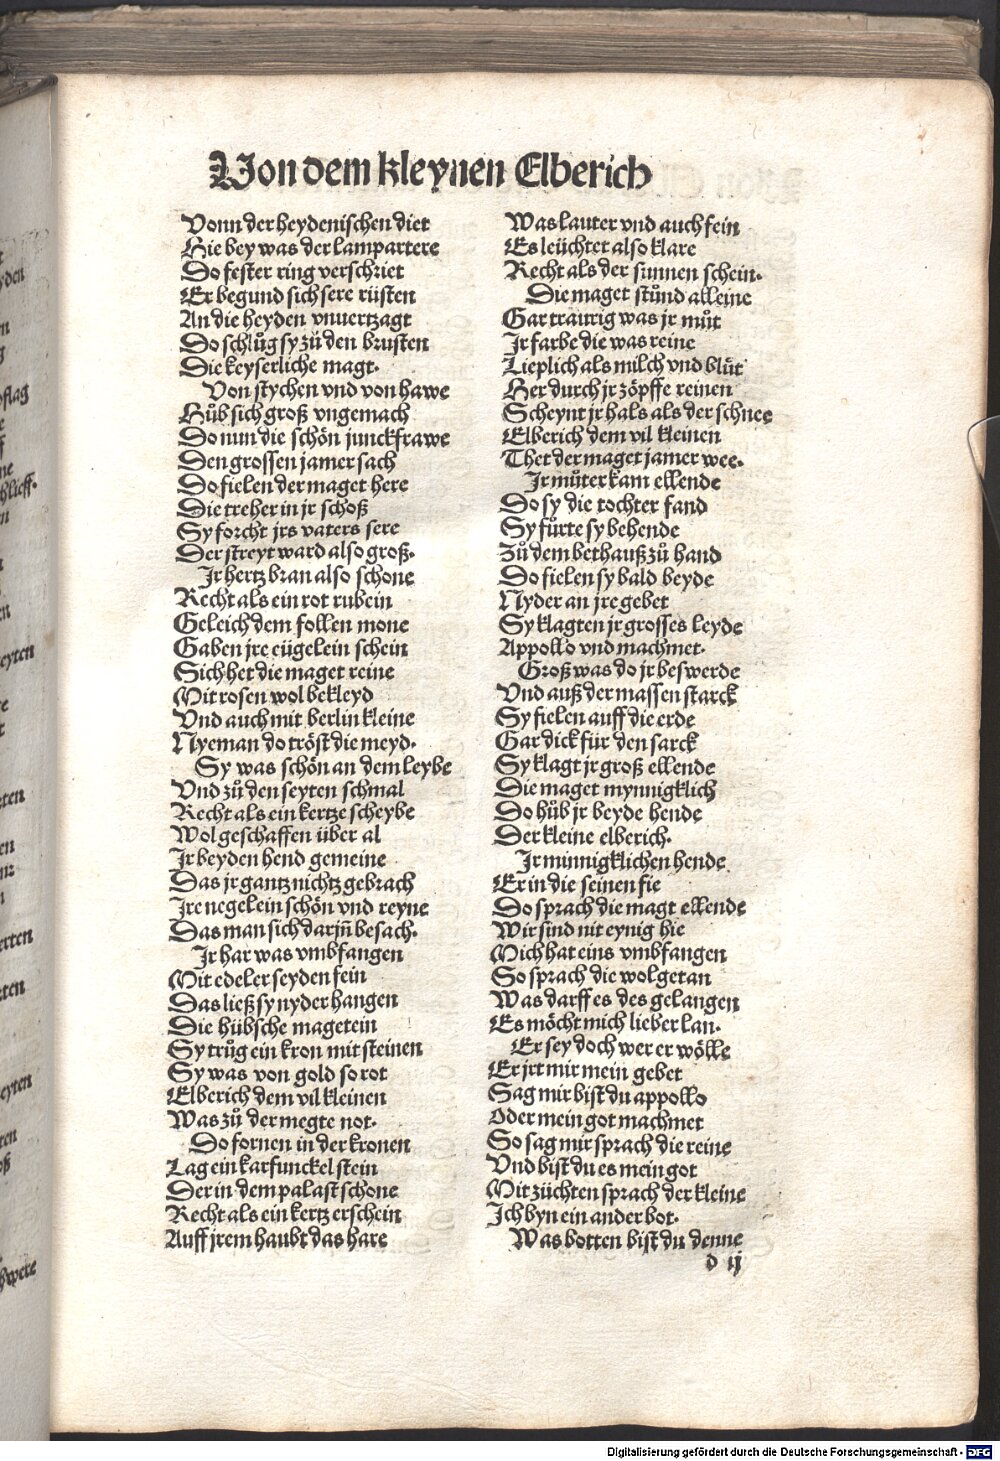 Von dem kleynen Elberich
Vonn der heydenischen diet
Hie bey was der lampartere
Do fester ring verschriet
Er begund sich sere rüsten
An die heyden vnuertzagt
Do schlůg sy zů den brusten
Die keyserliche magt.
Von stychen vnd von hawe
Hůb sich groß vngemach
Do nun die schön junckfrawe
Den grossen jamer sach
Do fielen der maget here
Die treher in jr schoß
Sy forcht jrs vaters sere
Der streyt ward also groß.
Jr hertz bran also schone
Recht als ein rot rubein
Geleich dem follen mone
Gaben jre eügelein schein
Sich het die maget reine
Mit rosen wol bekleyd
Vnd auch mit berlin kleine
Nyeman do tröst die meyd.
Sy was schön an dem leybe
Vnd zů den seyten schmal
Recht als ein kertze scheybe
Wol geschaffen über al
Jr beyden hend gemeine
Das jr gantz nichtz gebrach
Jre negelein schön vnd reyne
Das man sich darjn̄ besach.
Jr har was vmbfangen
Mit edeler seyden fein
Das ließ sy nyder hangen
Die hübsche magetein
Sy trůg ein kron mit steinen
Sy was von gold so rot
Elberich dem vil kleinen
Was zů der megte not.
Do fornen in der kronen
Lag ein karfunckel stein
Der in dem palast schone
Recht als ein kertz erschein
Auff jrem haubt das hare
Was lauter vnd auch fein
Es leüchtet also klare
Recht als der sunnen schein.
Die maget stůnd alleine
Gar traurig was jr můt
Jr farbe die was reine
Lieplich als milch vnd blůt
Her durch jr zöpffe reinen
Scheynt jr hals als der schnee
Elberich dem vil kleinen
Thet der maget jamer wee.
Jr můter kam ellende
Do sy die tochter fand
Sy fürte sy behende
Zů dem bethauß zů hand
Do fielen sy bald beyde
Nyder an jre gebet
Sy klagten jr grosses leyde
Appollo vnd machmet.
Groß was do jr beswerde
Vnd auß der massen starck
Sy fielen auff die erde
Gar dick für den sarck
Sy klagt jr groß ellende
Die maget mynnigklich
Do hůb jr beyde hende
Der kleine elberich.
Jr minnigklichen hende
Er in die seinen fie
Do sprach die magt ellende
Wir sind nit eynig hie
Mich hat eins vmbfangen
So sprach die wolgetan
Was darff es des gelangen
Es möcht mich lieber lan.
Er sey doch wer er wölle
Er jrt mir mein gebet
Sag mir bist du appollo
Oder mein got machmet
So sag mir sprach die reine
Vnd bist du es mein got
Mit züchten sprach der kleine
Jch byn ein ander bot.
Was botten bist du denne
d ij
Digitalisierung gefördert durch die Deutsche Forschungsgemeinschaft - DFG